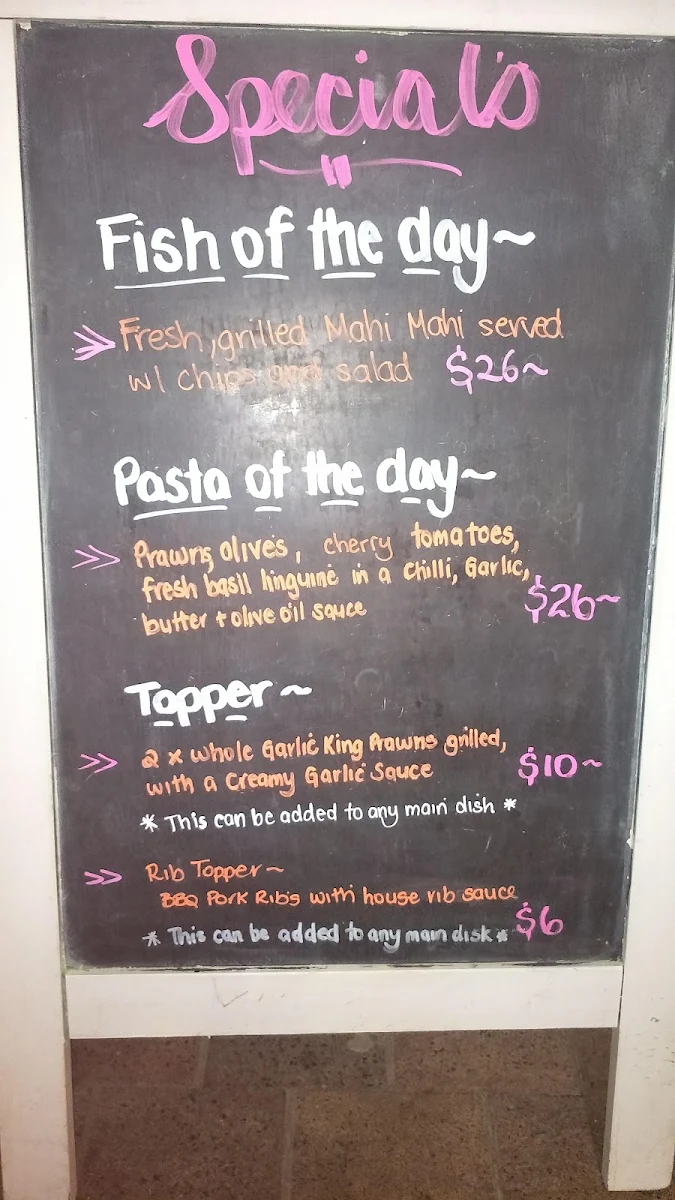 Special's
Fish of the day~
Fresh, grilled Mahi Mahi served
w/ chips and salad $26~
Pasta of the day~
Prawns, olives, cherry tomatoes,
fresh basil linguine in a chilli, Garlic,
butter + olive oil sauce $26~
Topper~
2 x whole Garlic King Prawns grilled,
with a Creamy Garlic Sauce $10~
* This can be added to any main dish *
Rib Topper~
BBQ Pork Rib's with house rib sauce
* This can be added to any main disk * $6